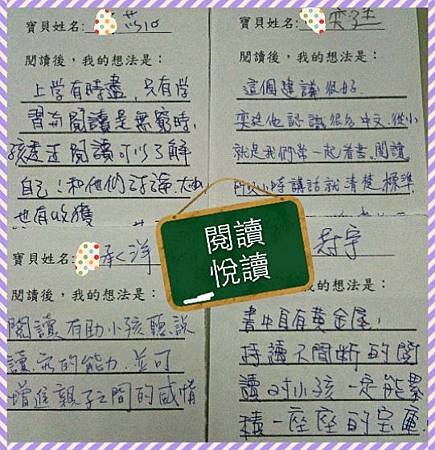 寶貝姓名：
閱讀後，我的想法是：
上學有時盡，只有學
習and閱讀是無窮時，
孩是在閱讀可以了解
自己！和他們討論，大人
也有收獲
寶貝姓名： 奕廷
閱讀後，我的想法是：
這個建議很好
奕廷他認識很多中文，從小
就是我們常一起看書、閱讀
所以小時講話就清楚、標準
閱讀
悅讀
寶貝姓名： 承洋
閱讀後，我的想法是：
閱讀有助小孩聽、說
讀、寫的能力，並可
增進親子之間的感情
宇
閱讀後，我的想法是：
書中自有黃金屋，
持續不間斷的閱
讀，對小孩一定能累
積一座座的寶庫